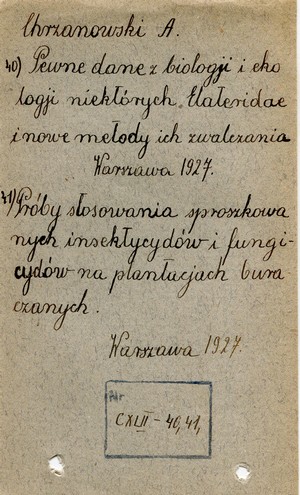 Chrzanowski A.
40) Pewne dane z biologji i eko
logji niektórych Elateridae
i nowe metody ich zwalczania
Warszawa 1927.
41) Próby stosowania sproszkowa
nych insektycydów i fungi-
cydów na plantacjach bura
czanych.
Warszawa 1927.
Nr
CXLII - 40, 41,